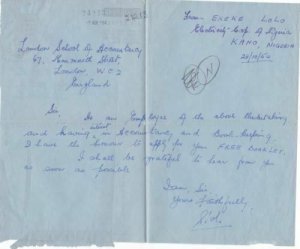 From EKEKE LOLO
Electricity Corp. of Nigeria
KANO, NIGERIA
London School of Accountancy
67,
London WC2
England
Sir,
As an Employee of the above Undertaking,
and having interest in Accountancy and Book-keeping,
I have the honour to apply for your FREE BOOKLET.
I shall be grateful to hear from you
as soon as possible
Dear Sir
Yours faithfully,